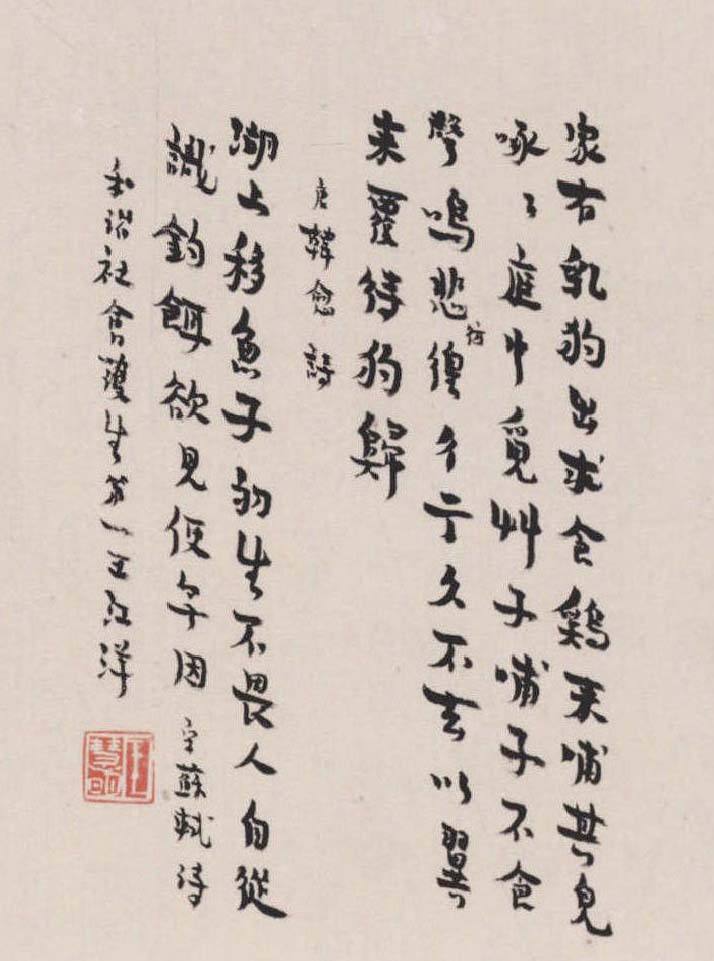 家有乳狗出求食鷄来哺其兒
啄〻庭中覓艸子哺子不食
聲鳴悲彷徨彳亍久不去以翼
来覆待狗歸
唐韓愈詩
湖上移魚子初生不畏人自從
識鈎餌欲見便無因 宋蘇軾詩
和諧社會護生第一王洋